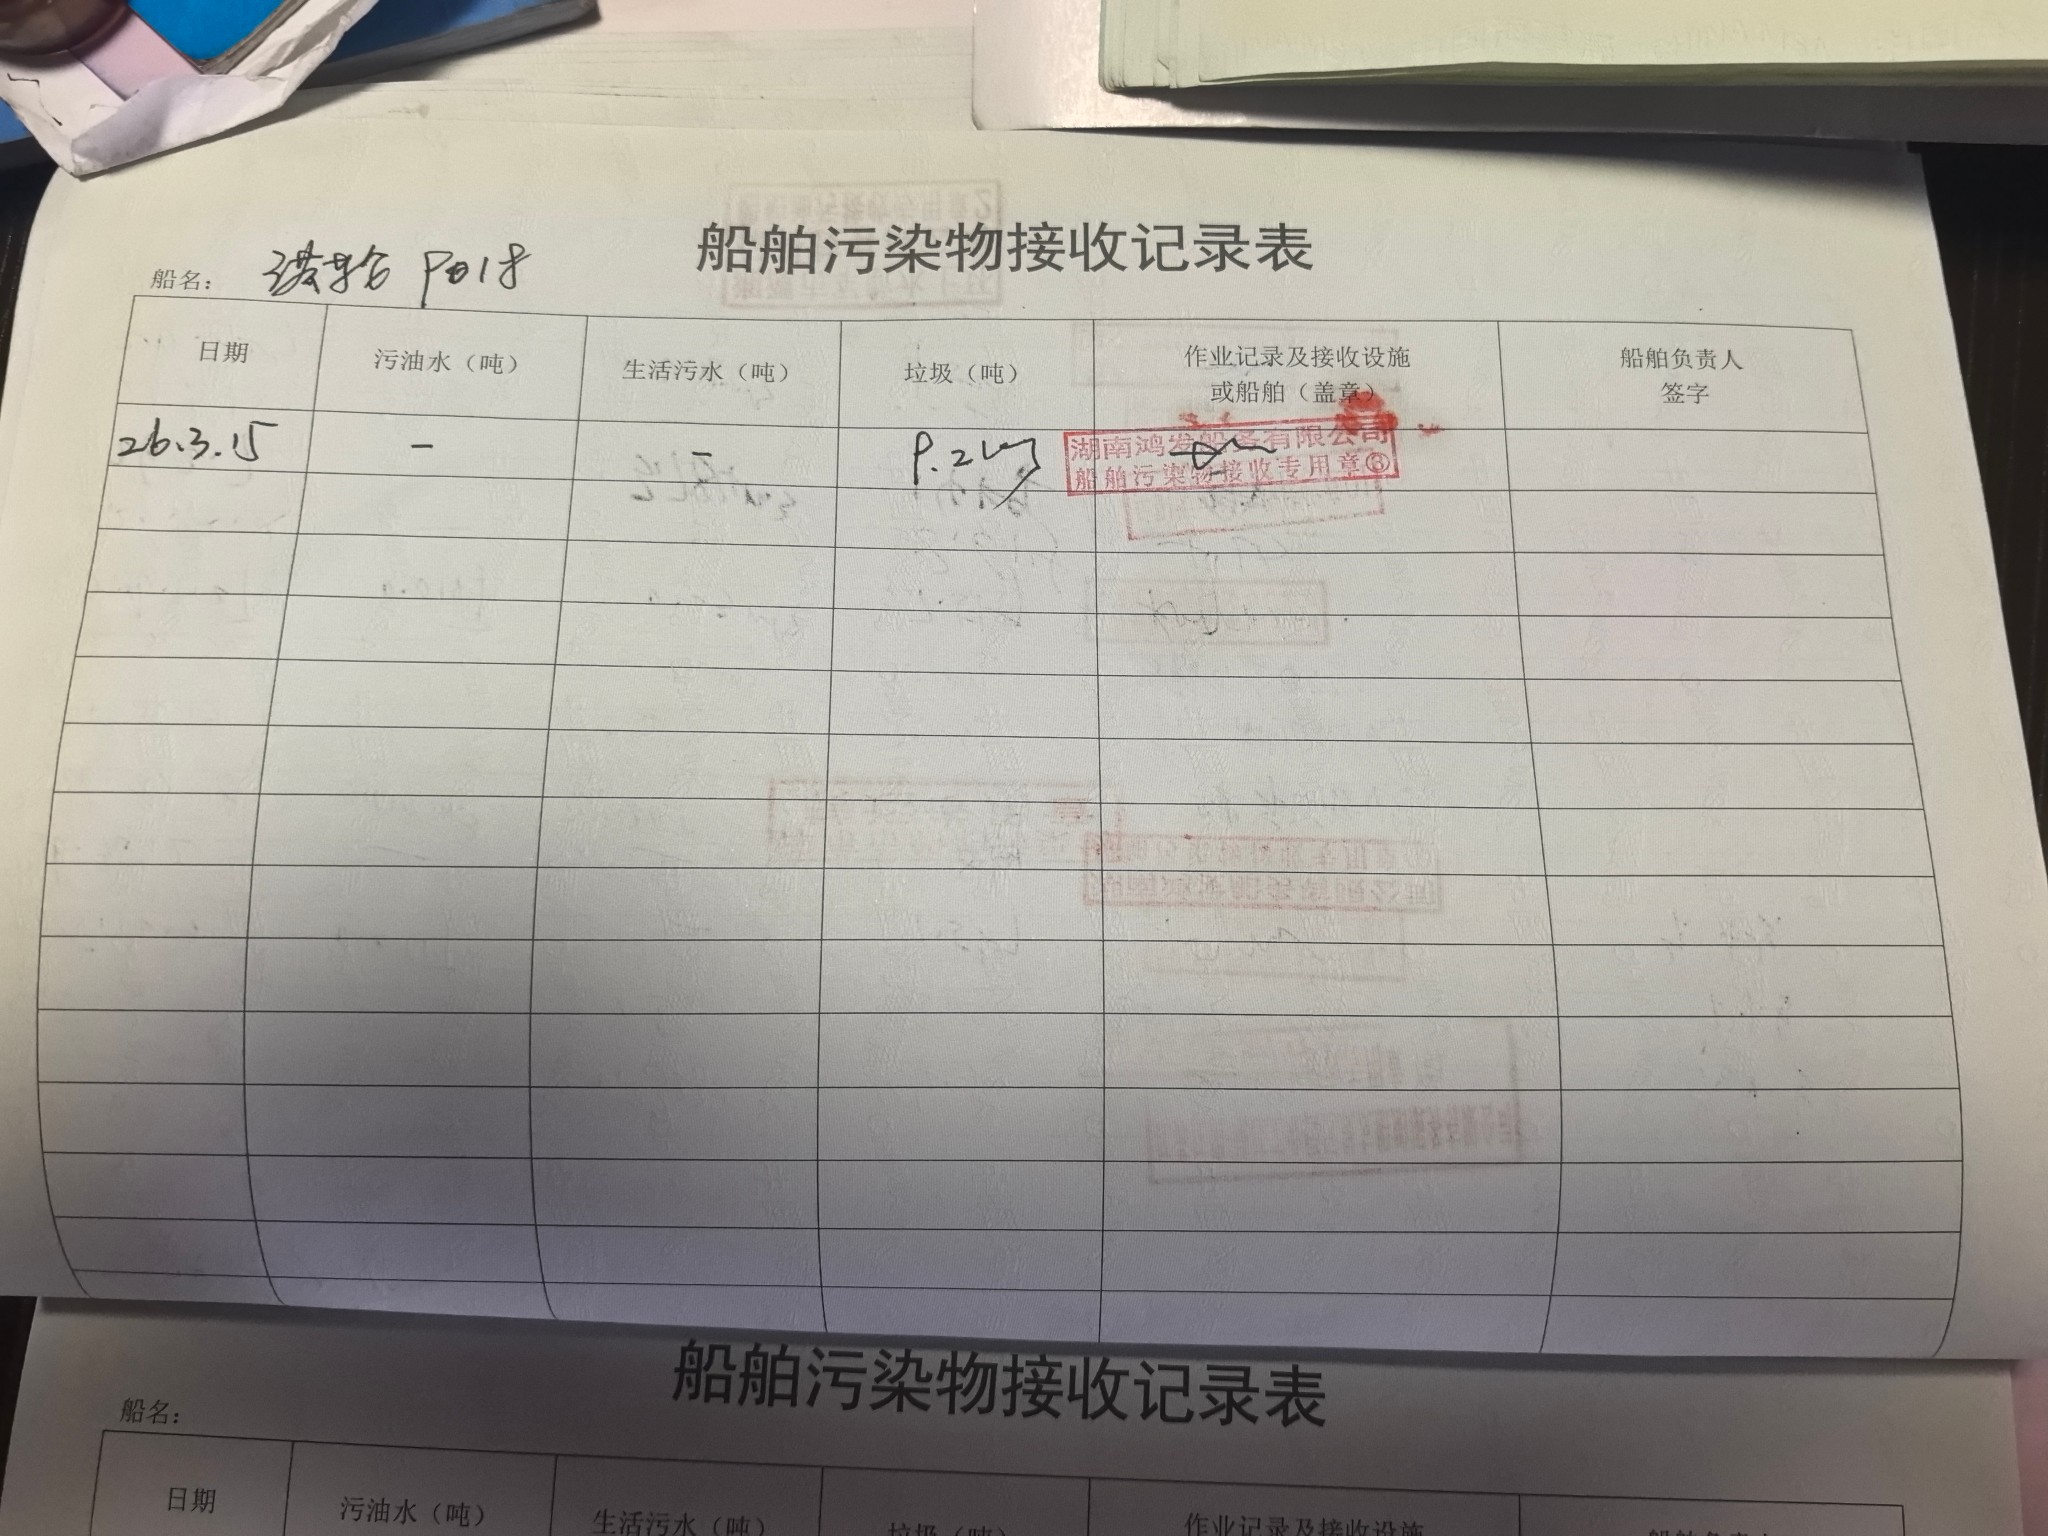 船舶污染物接收记录表
船名：
日期 污油水（吨） 生活污水（吨） 垃圾（吨） 作业记录及接收设施
或船舶（盖章） 船舶负责人
签字
26.3.15 - -
湖南鸿发船务有限公司
船舶污染物接收专用章③
船舶污染物接收记录表
船名：
日期 污油水（吨） 生活污水（吨） 垃圾（吨） 作业记录及接收设施 船舶负责人